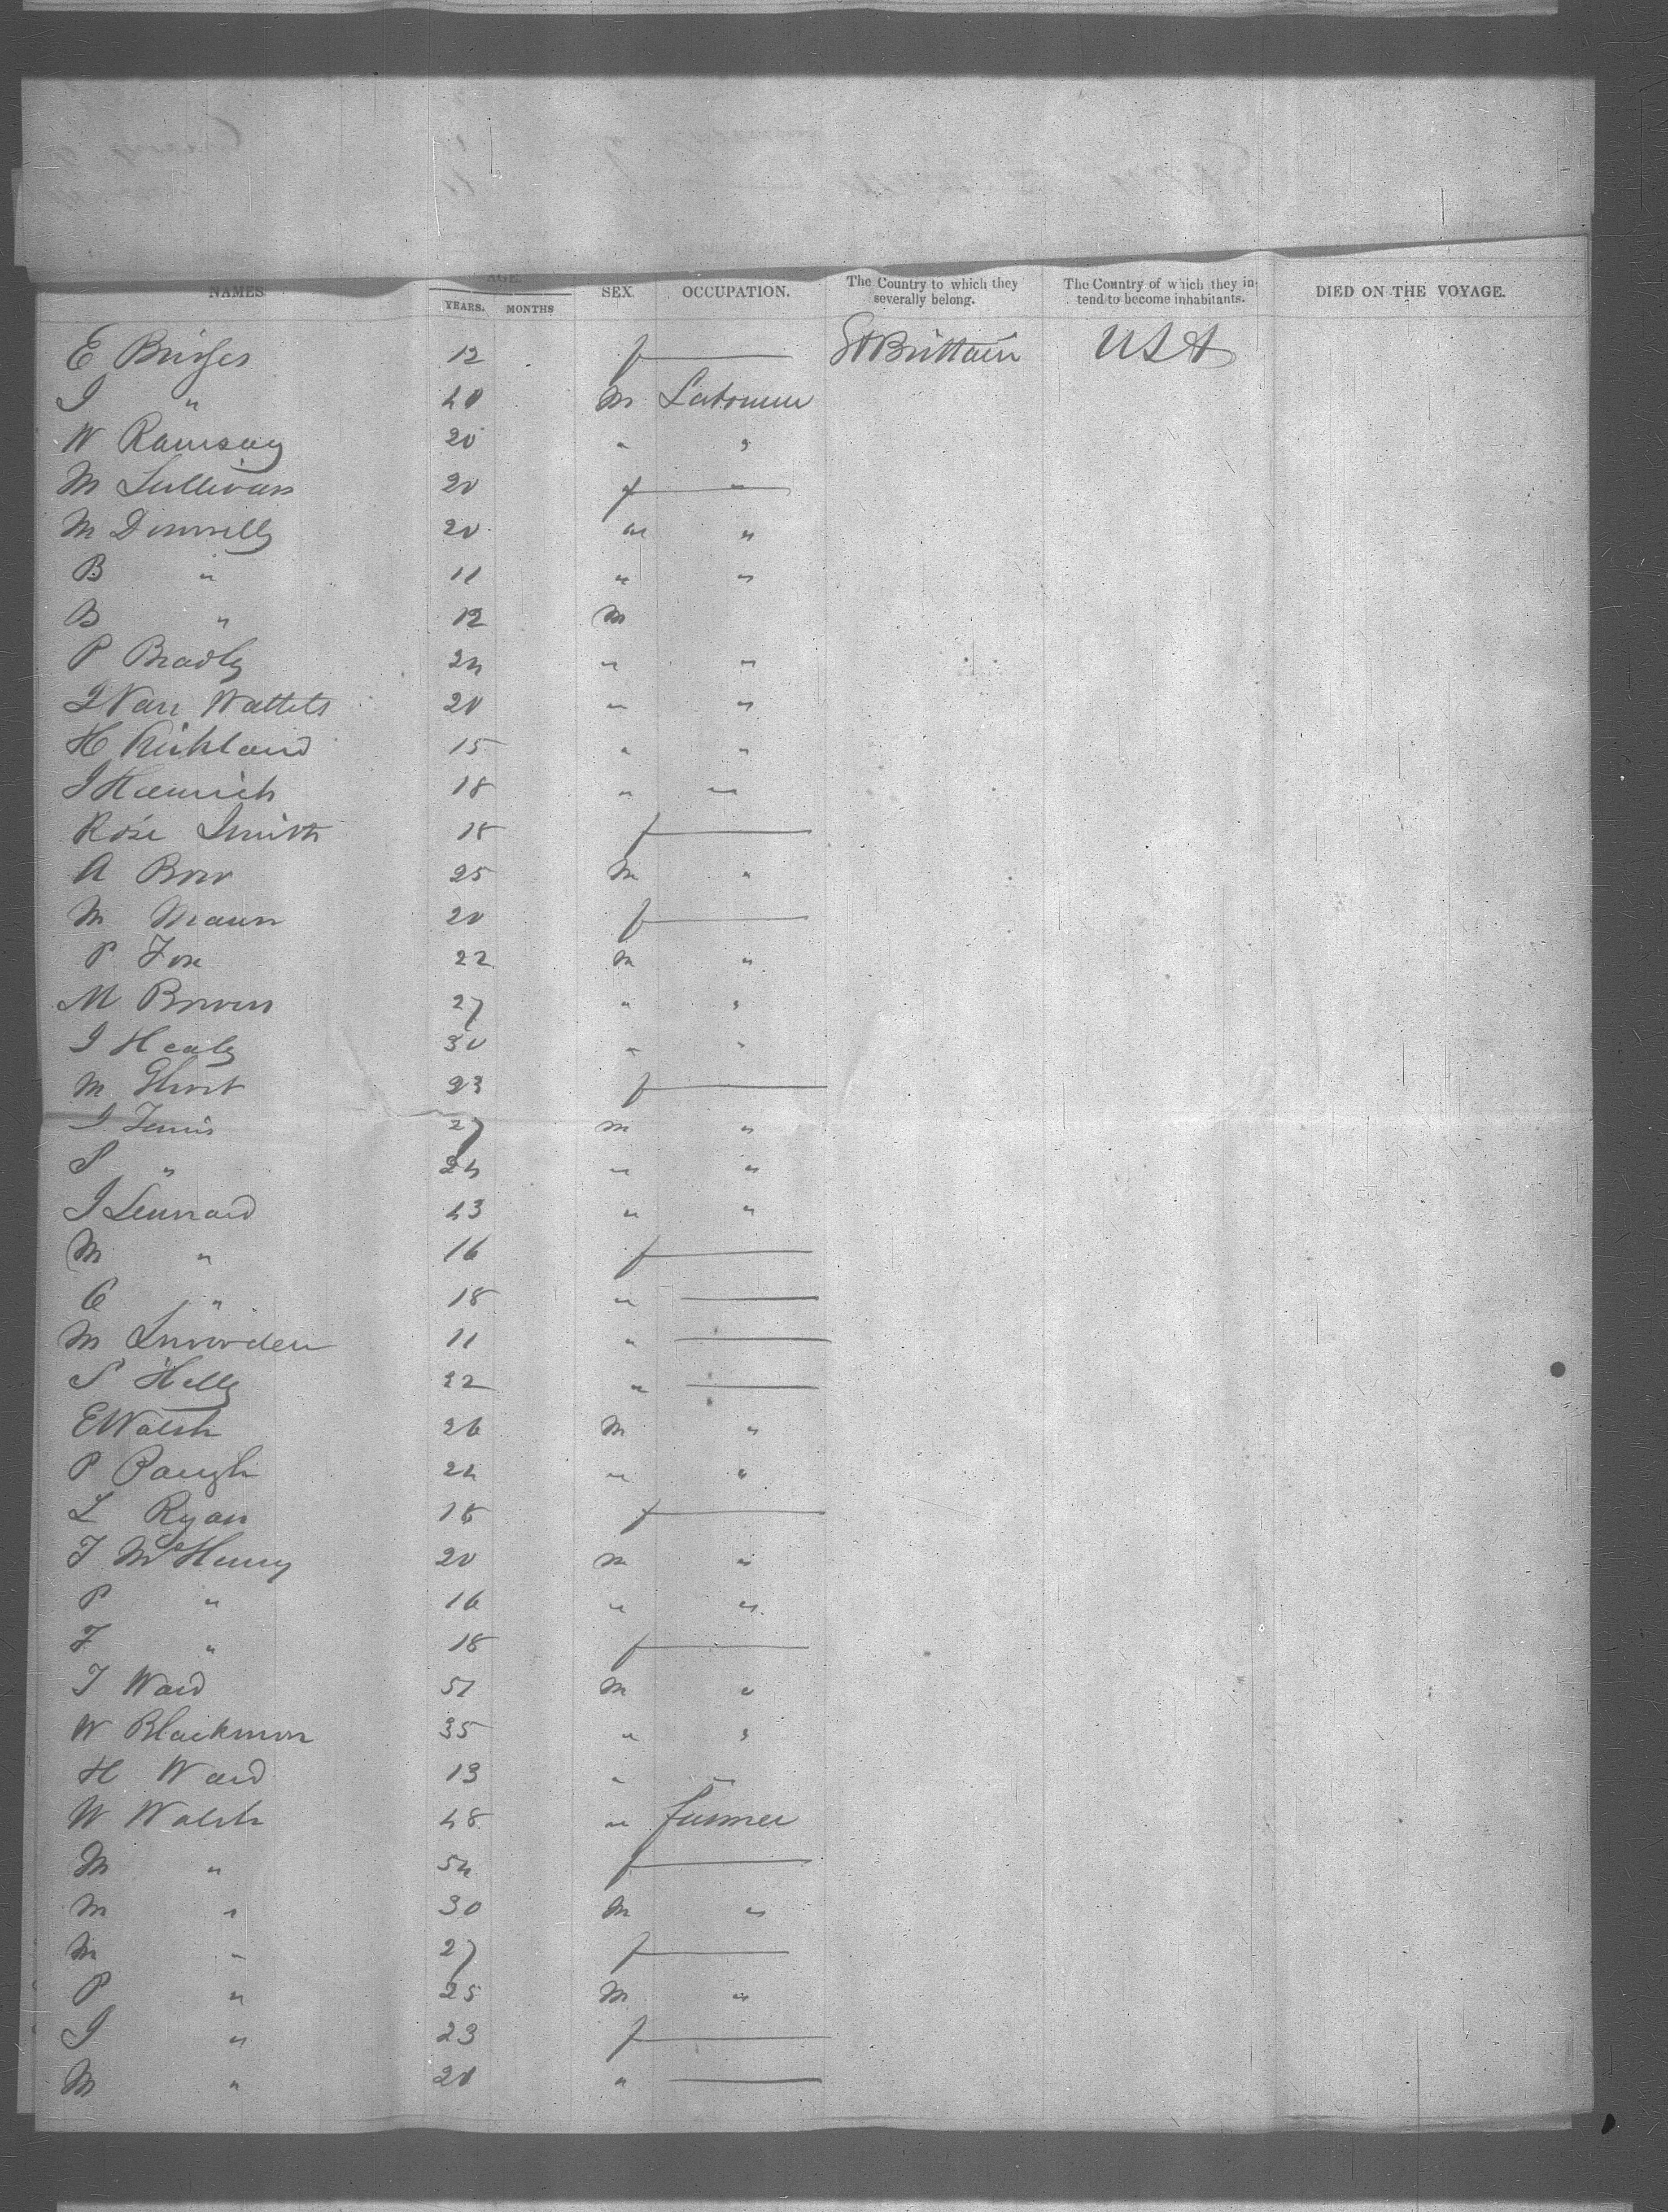 NAMES AGE. YEARS. MONTHS SEX. OCCUPATION. The Country to which they severally belong. The Country of which they intend to become inhabitants. DIED ON THE VOYAGE.
E 12 f Gt Brittain USA
J " 40 m Labourer
W Ramsay 20 " "
M Sullivan 20 f "
M Donnelly 20 m "
B " 11 " "
B " 12 M
P Bradly 24 " "
J Van 20 " "
H Kirkland 15 " "
J Heinrich 18 " "
Rose Smith 18 f
A Bow 25 M "
M Mann 20 f
P Fox 22 M "
M Bowen 27 " "
J Healy 30 " "
M 23 f
J 27 m "
S " 24 " "
J Lennard 43 " "
M " 16 f
C " 18 "
M Snowden 11 "
S 22 "
E Walsh 26 M "
P 24 " "
L Ryan 18 f
T McHenry 20 m "
P " 16 " "
F " 18 f
T Ward 51 M "
W Blackmon 35 " "
H Ward 13 " "
W Walsh 48 " farmer
M " 54 f
M " 30 M "
M " 27 f
P " 25 M "
J " 23 f
M " 20 "